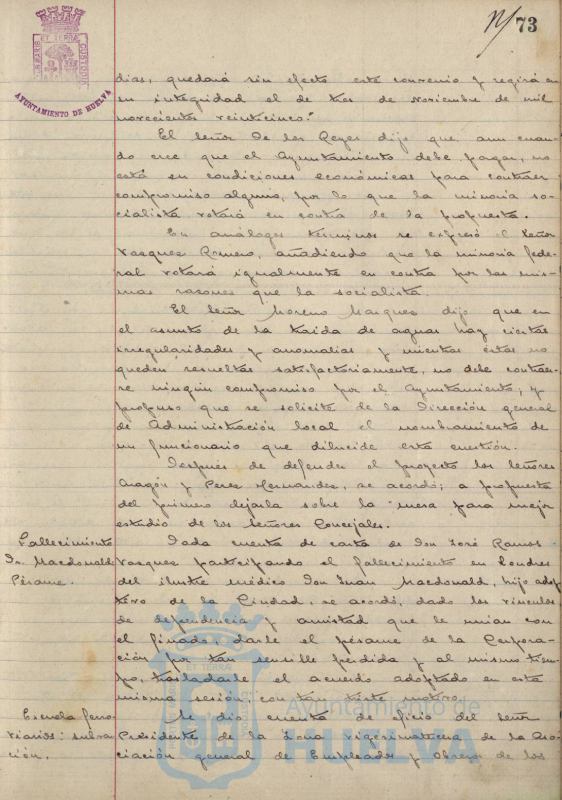 73
PORTUS MARIS ET TERRAE CUSTODIA
AYUNTAMIENTO DE HUELVA
dias, quedará sin efecto este convenio y regirá en
su integridad el de tres de Noviembre de mil
novecientos veinticinco."
El Señor De los Reyes dijo que aun cuan-
do cree que el Ayuntamiento debe pagar, no
está en condiciones económicas para contraer
compromiso alguno, por lo que la minoria so-
cialista votará en contra de la propuesta.
En análogos términos se expresó el Señor
Vasquez Romero, añadiendo que la minoria fede-
ral votará igualmente en contra por las mis-
mas razones que la socialista.
El Señor Moreno Marquez dijo que en
el asunto de la traida de aguas hay ciertas
irregularidades y anomalias y mientras éstas no
queden resueltas satisfactoriamente, no debe contraer-
se ningún compromiso por el Ayuntamiento, y
propuso que se solicite de la Dirección general
de Administración local el nombramiento de
un funcionario que dilucide esta cuestión.
Después de defender el proyecto los Señores
Aragón y Perez Hernandez, se acordó; a propuesta
del primero dejarla sobre la mesa para mejor
estudio de los Señores Concejales.
Fallecimiento
Dr. Macdonald
Pésame.
Dada cuenta de carta de Don José Ramos
Vasquez participando el fallecimiento en Londres
del ilustre médico Don Juan Macdonald, hijo adop-
tivo de la Ciudad, se acordó, dado los vinculos
de dependencia y amistad que le unian con
el finado, darle el pésame de la Corpora-
ción por tan sensible perdida y al mismo tiem-
po, trasladarle el acuerdo adoptado en esta
misma sesión con tan triste motivo.
Escuela ferro-
viarios: subven
ción.
Se dio cuenta de oficio del señor
Presidente de la Zona vigesimatercera de la Aso-
ciación general de Empleados y Obreros de los
Ayuntamiento de
HUELVA